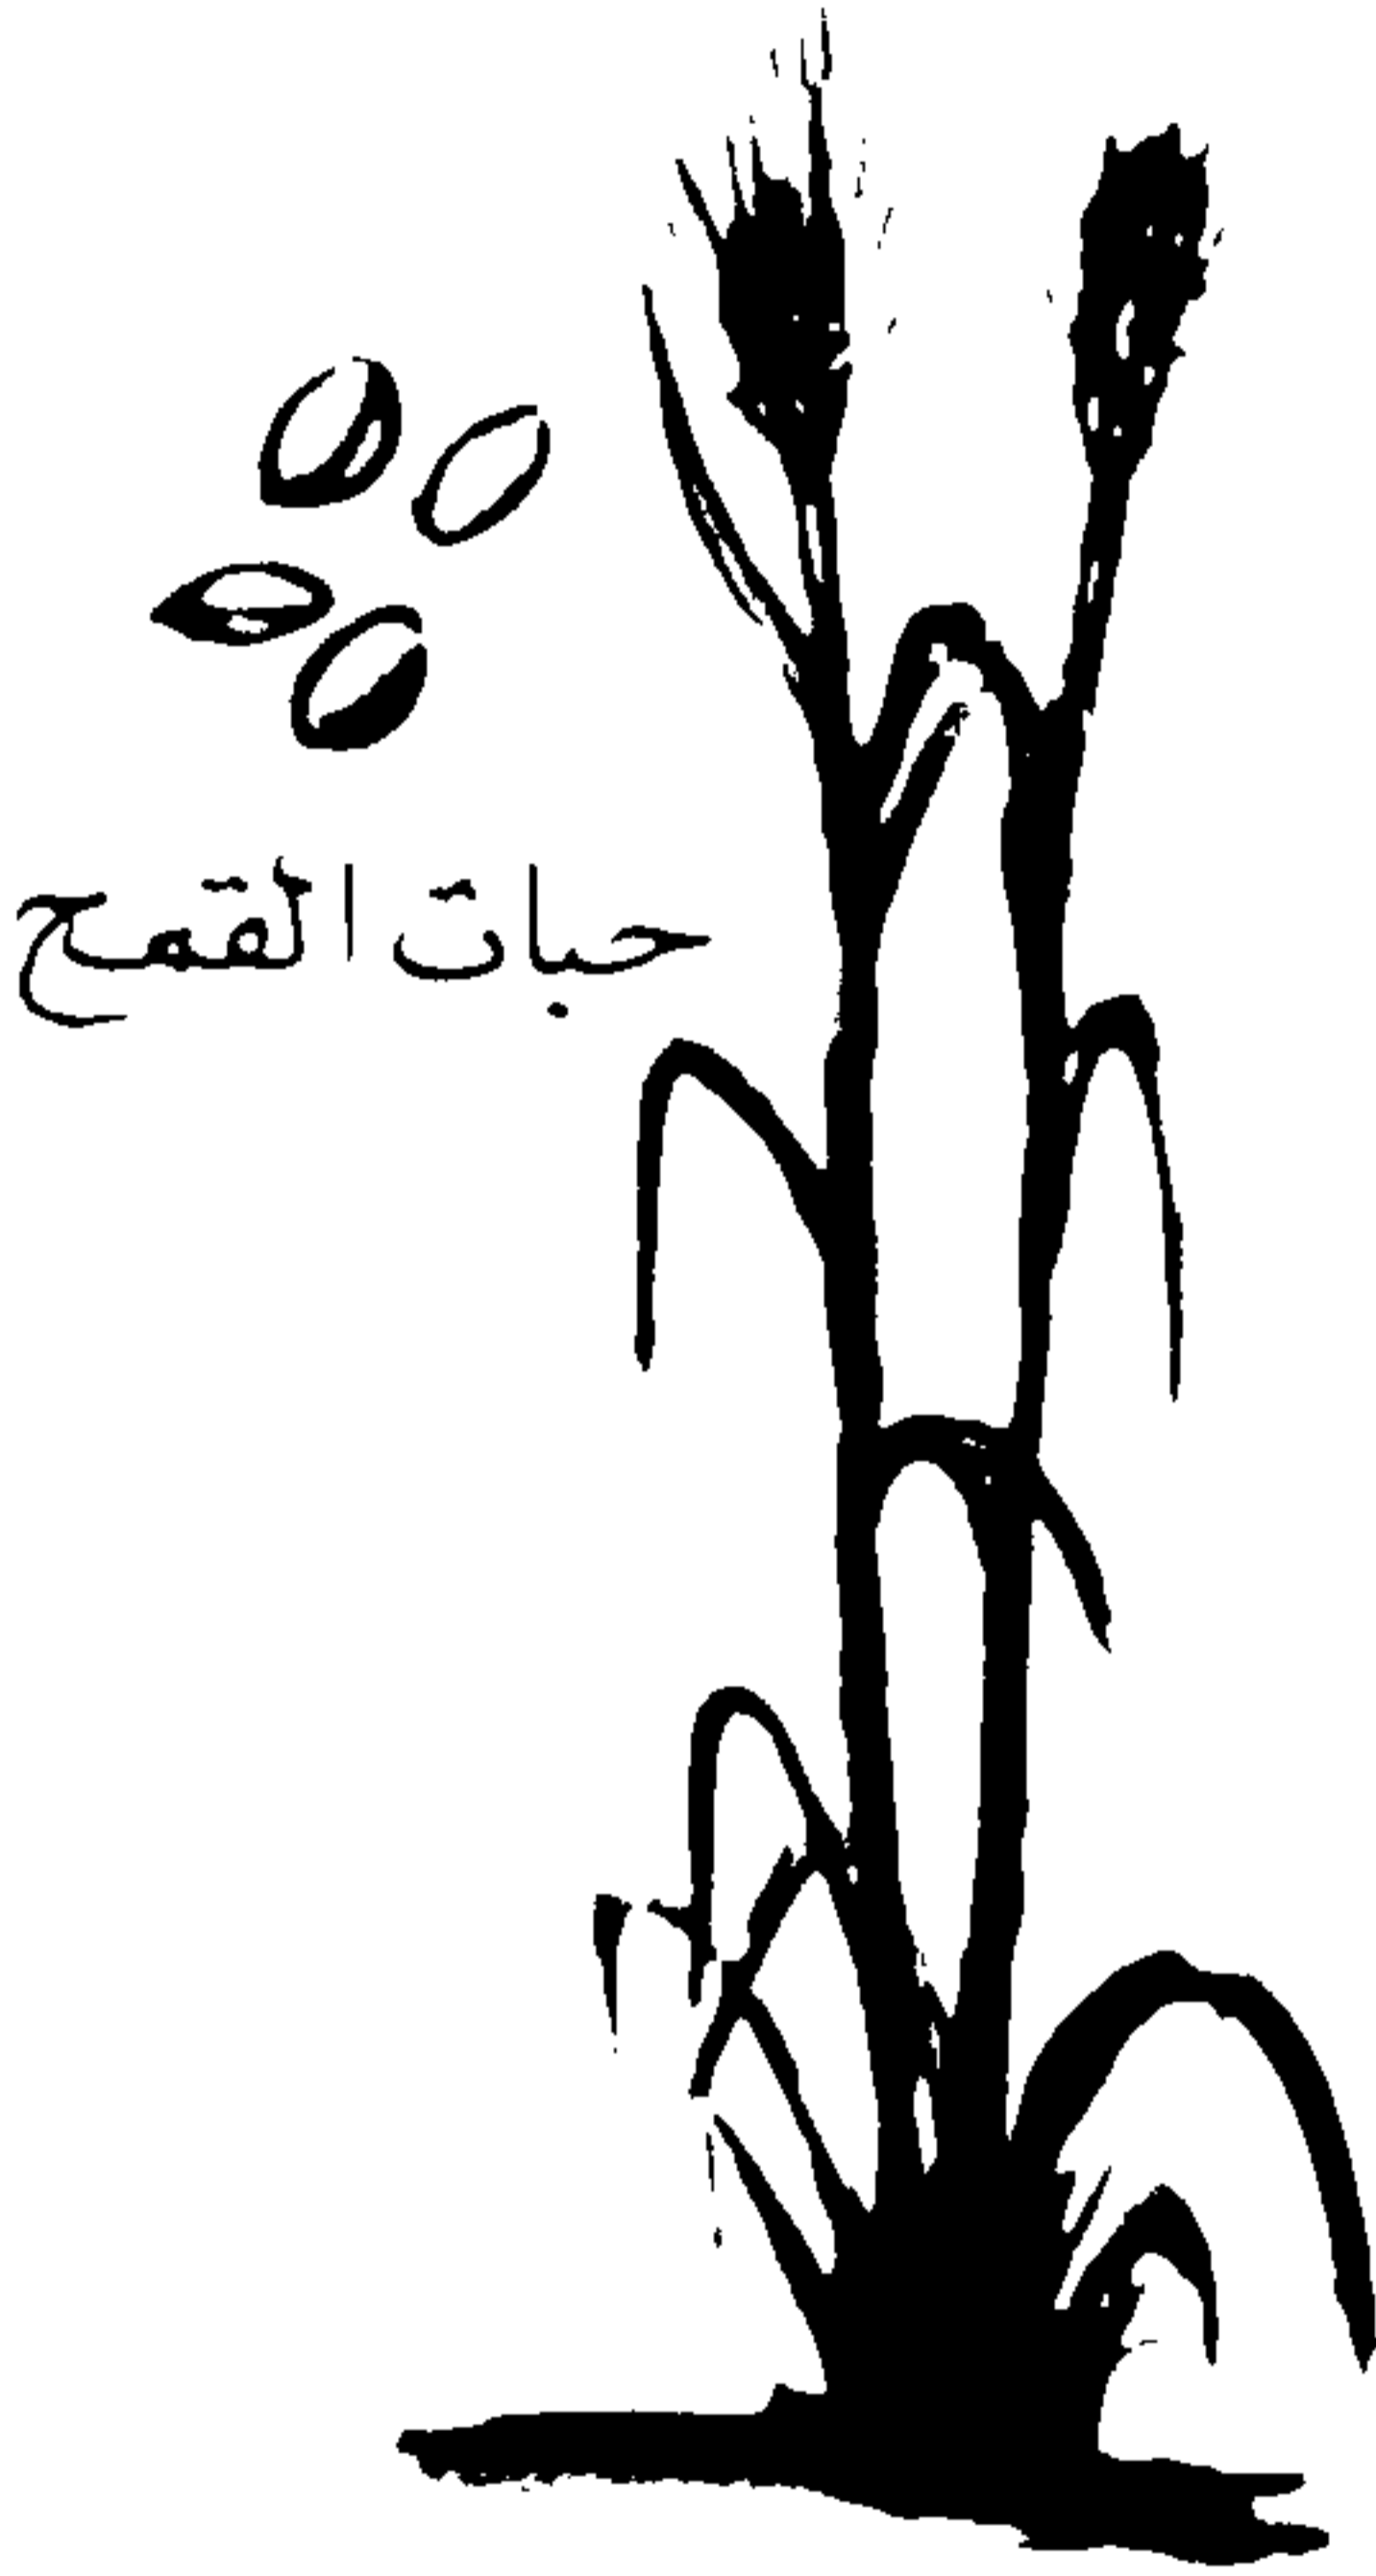 حبات القمح